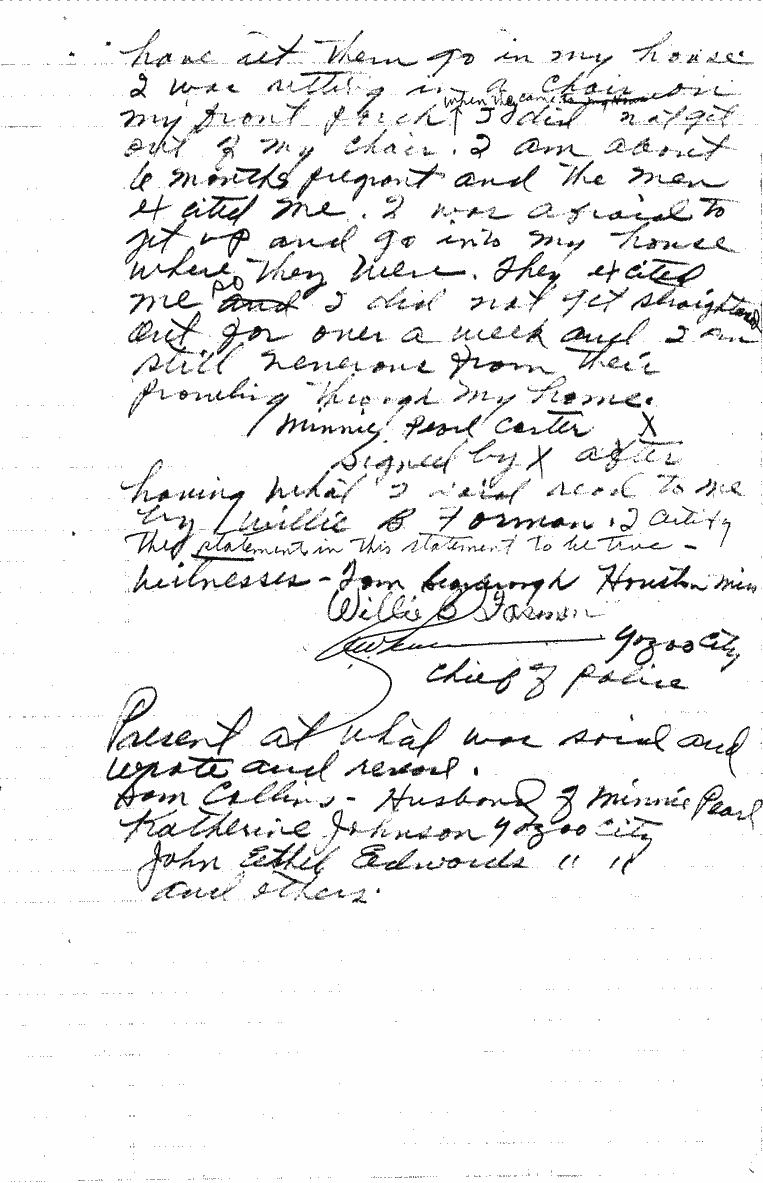 have let them go in my house
I was setting in a chair on
my front porch when they came to my house I did not get
out of my chair. I am about
6 months pregnant and the men
excited me. I was afraid to
get up and go into my house
where they were. They excited
me and so I did not get straightened
out for over a week and I am
still nervous from their
prowling through my home.
Minnie Pearl Carter X
Signed by X after
having what I said read to me
by Willie B Forman. I certify
this statement in this statement to be true -
Witnesses - Tom Houston Miss
Willie B Forman
Yazoo City
Chief of Police
Present at what was said and
wrote and read.
Sam Collins - Husband of Minnie Pearl
Katherine Johnson Yazoo City
John Ethel Edwards " "
and others.